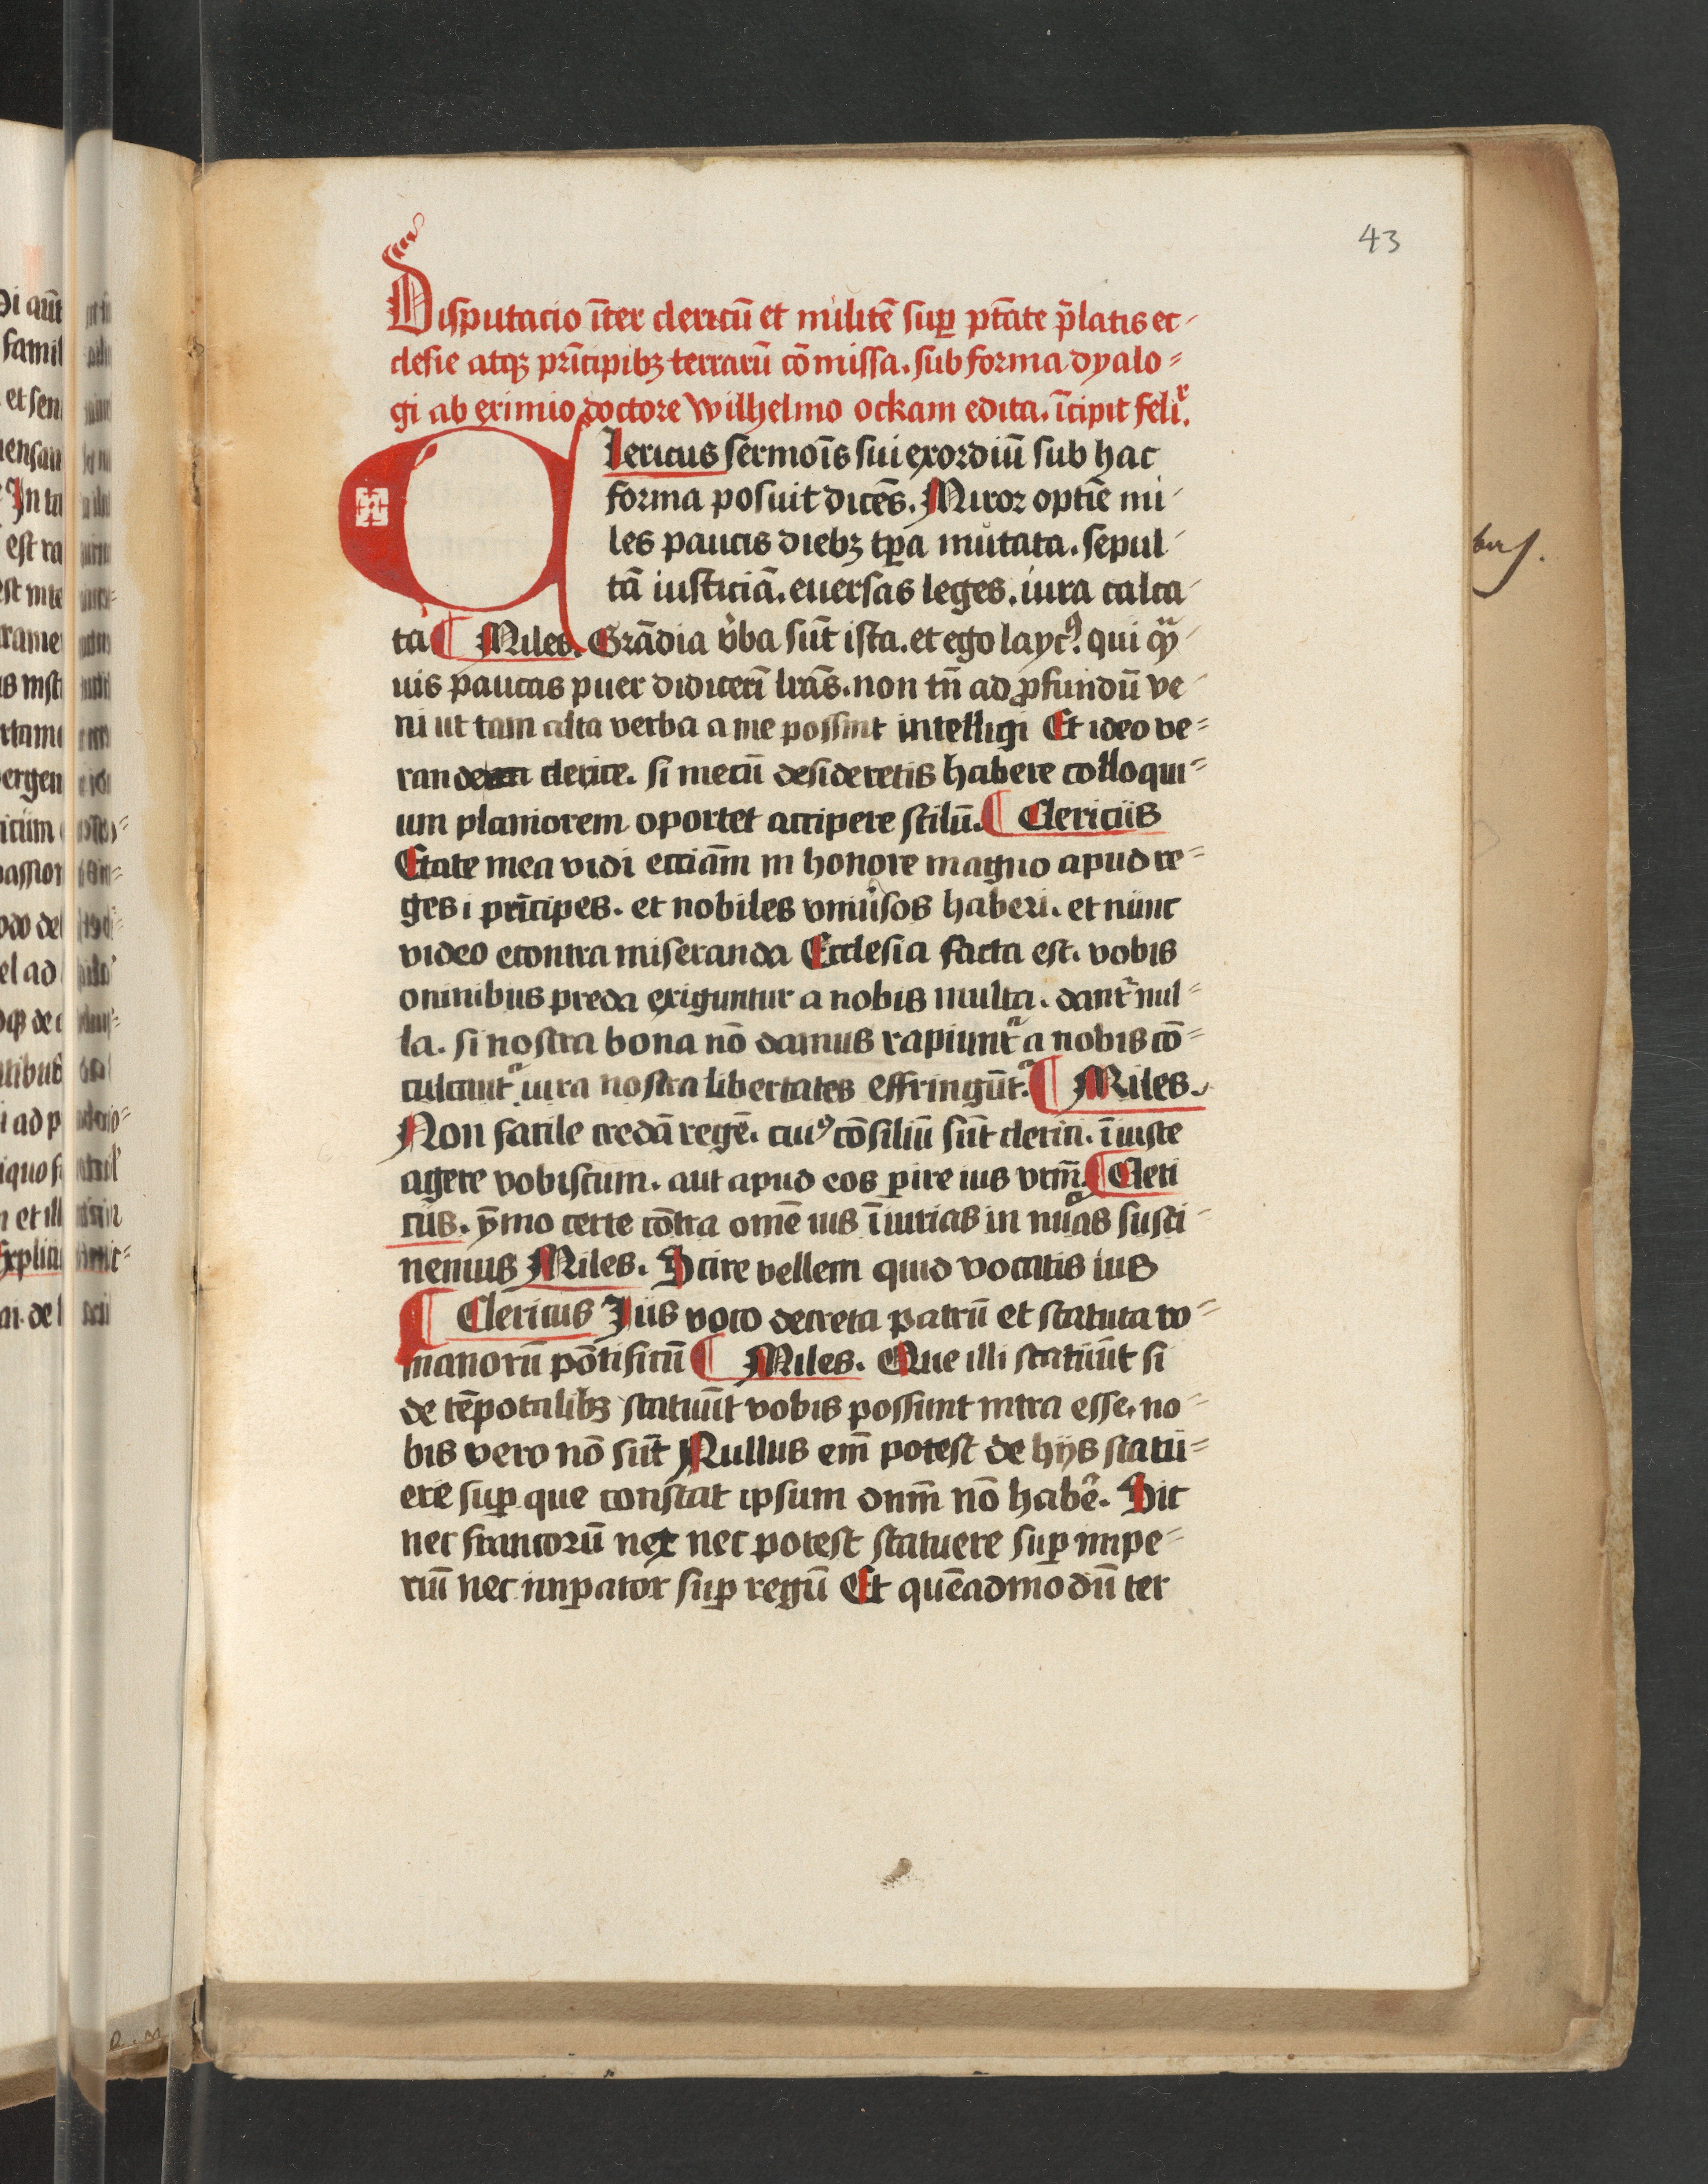 43
Disputacio īter clericū et militē suꝑ ptāte p̄latis ec-
clesie atqꝫ prīcipibꝫ terrarū cōmissa. sub forma dyalo=
gi ab eximio doctore Wilhelmo ockam edita. īcipit feliͬ.
Clericus sermoīs sui exordiū sub hac
forma posuit dicēs. Miror optīe mi-
les paucis diebꝫ tꝑa mutata. sepul-
tā iusticiā. euersas leges. iura calca-
ta ¶ Miles. Grādia v̓ba sūt ista. et ego laycꝰ. qui qͣ̄-
uis paucas puer didicerī lrās. non tn̄ ad ꝓfundū ve-
ni ut tam alta verba a me possint intelligi Et ideo ve=
rande clerice. si mecū desideretis habere colloqui=
um planiorem oportet accipere stilū. ¶ Clericus
Etate mea vidi ecciām in honore magno apud re=
ges i prīcipes. et nobiles vniu̓sos haberi. et nunc
video econtra miseranda Ecclesia facta est. vobis
omnibus preda exiguntur a nobis multa. dant᷑ nul=
la. si nostra bona nō damus rapiunt᷑ a nobis cō=
culcant᷑ iura nostra libertates effringūt᷑ ¶ Miles.
Non facile credā regē. cuiꝰ cōsiliū sūt clerici. īiuste
agere vobiscum. aut apud eos ꝑire ius vr̄m. ¶ Cleri
cus. ẏmo certe cōtra omē ius īiurias in nuͣ̄as susti-
nemus Miles. Scire vellem quid vocatis ius
¶ Clericus Jus voco decreta patrū et statuta ro=
manorū pōtificū ¶ Miles. Que illi statuūt si
de tēporalibꝫ statuūt vobis possunt iura esse. no-
bis vero nō sūt Nullus em̄ potest de hijs statu=
ere suꝑ que constat ipsum dnm̄ nō habē. Sic
nec francorū rex nec potest statuere suꝑ impe=
riū nec imꝑator suꝑ regū Et quēadmodū ter